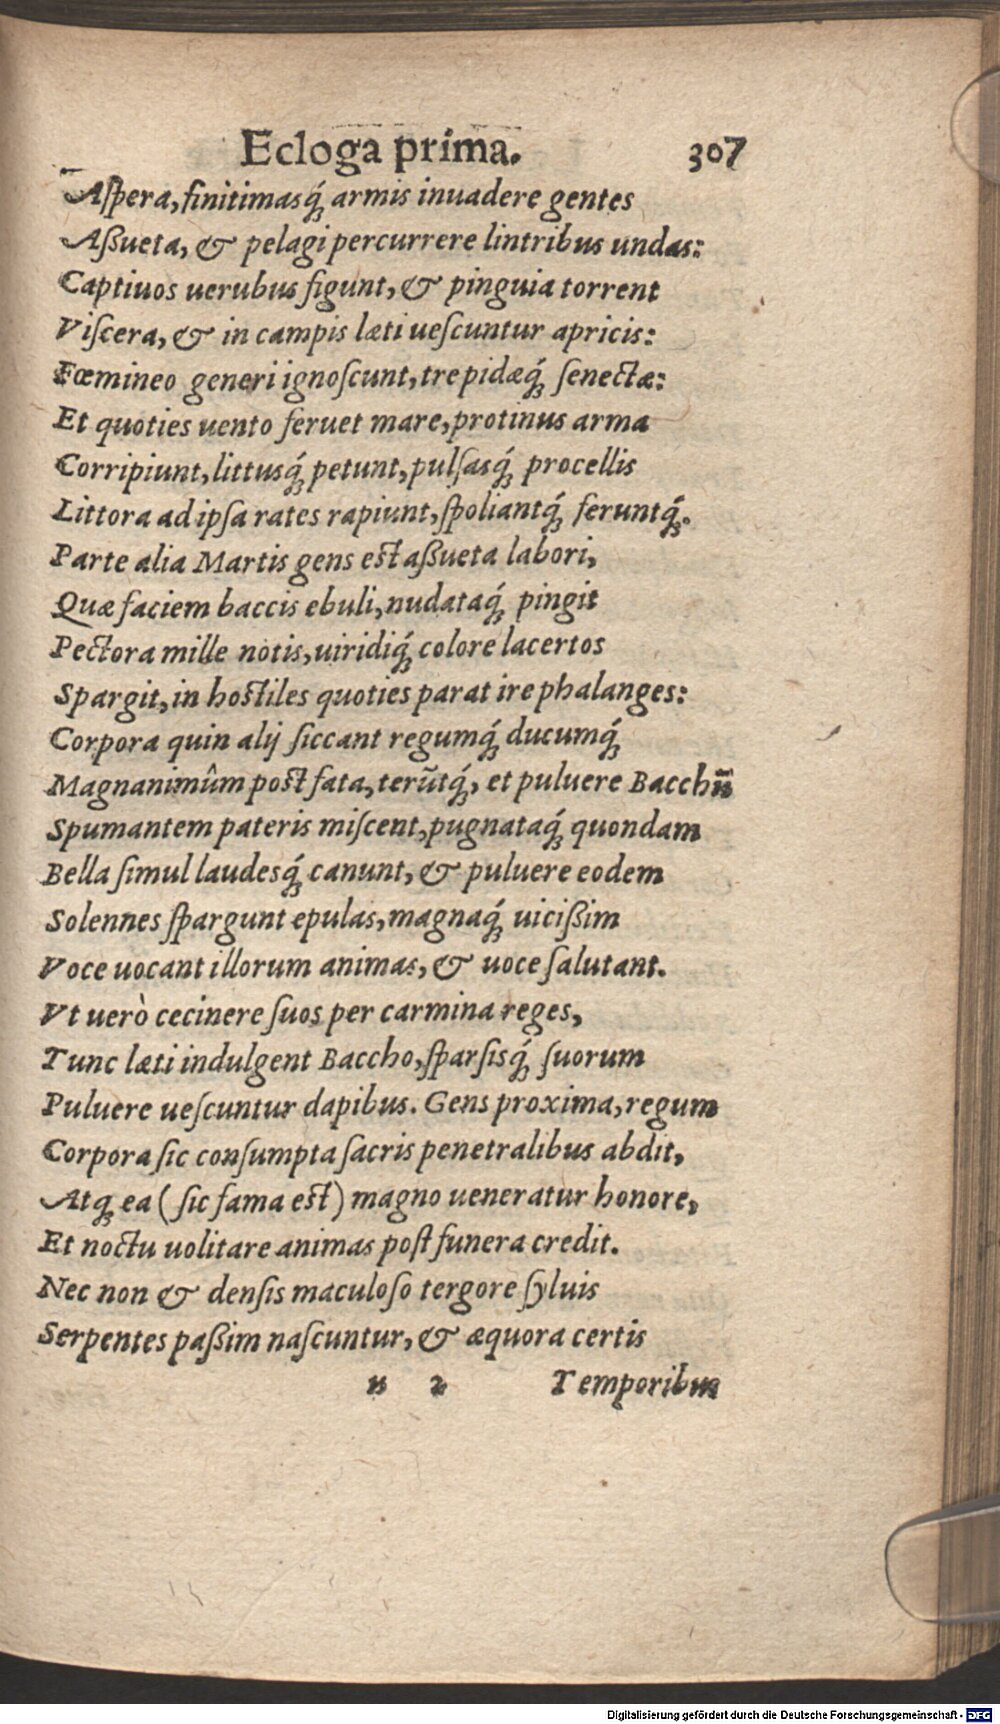 Ecloga prima. 307
Aſpera, finitimasq́; armis inuadere gentes
Aßueta, & pelagi percurrere lintribus undas:
Captiuos uerubus figunt, & pinguia torrent
Viſcera, & in campis læti ueſcuntur apricis:
Fœmineo generi ignoſcunt, trepidæq́; ſenectæ:
Et quoties uento feruet mare, protinus arma
Corripiunt, littusq́; petunt, pulſasq́; procellis
Littora ad ipſa rates rapiunt, ſpoliantq́; feruntq́;.
Parte alia Martis gens eſt aßueta labori,
Quæ faciem baccis ebuli, nudataq́; pingit
Pectora mille notis, uiridiq́; colore lacertos
Spargit, in hoſtiles quoties parat ire phalanges:
Corpora quin alij ſiccant regumq́; ducumq́;
Magnanimûm poſt fata, terũtq́;, et puluere Bacchũ
Spumantem pateris miſcent, pugnataq́; quondam
Bella ſimul laudesq́; canunt, & puluere eodem
Solennes ſpargunt epulas, magnaq́; uicißim
Voce uocant illorum animas, & uoce ſalutant.
Vt uerò cecinere ſuos per carmina reges,
Tunc læti indulgent Baccho, ſparſisq́; ſuorum
Puluere ueſcuntur dapibus. Gens proxima, regum
Corpora ſic conſumpta ſacris penetralibus abdit,
Atq; ea (ſic fama eſt) magno ueneratur honore,
Et noctu uolitare animas poſt funera credit.
Nec non & denſis maculoſo tergore ſyluis
Serpentes paßim naſcuntur, & æquora certis
u 2 Temporibus
Digitalisierung gefördert durch die Deutsche Forschungsgemeinschaft - DFG